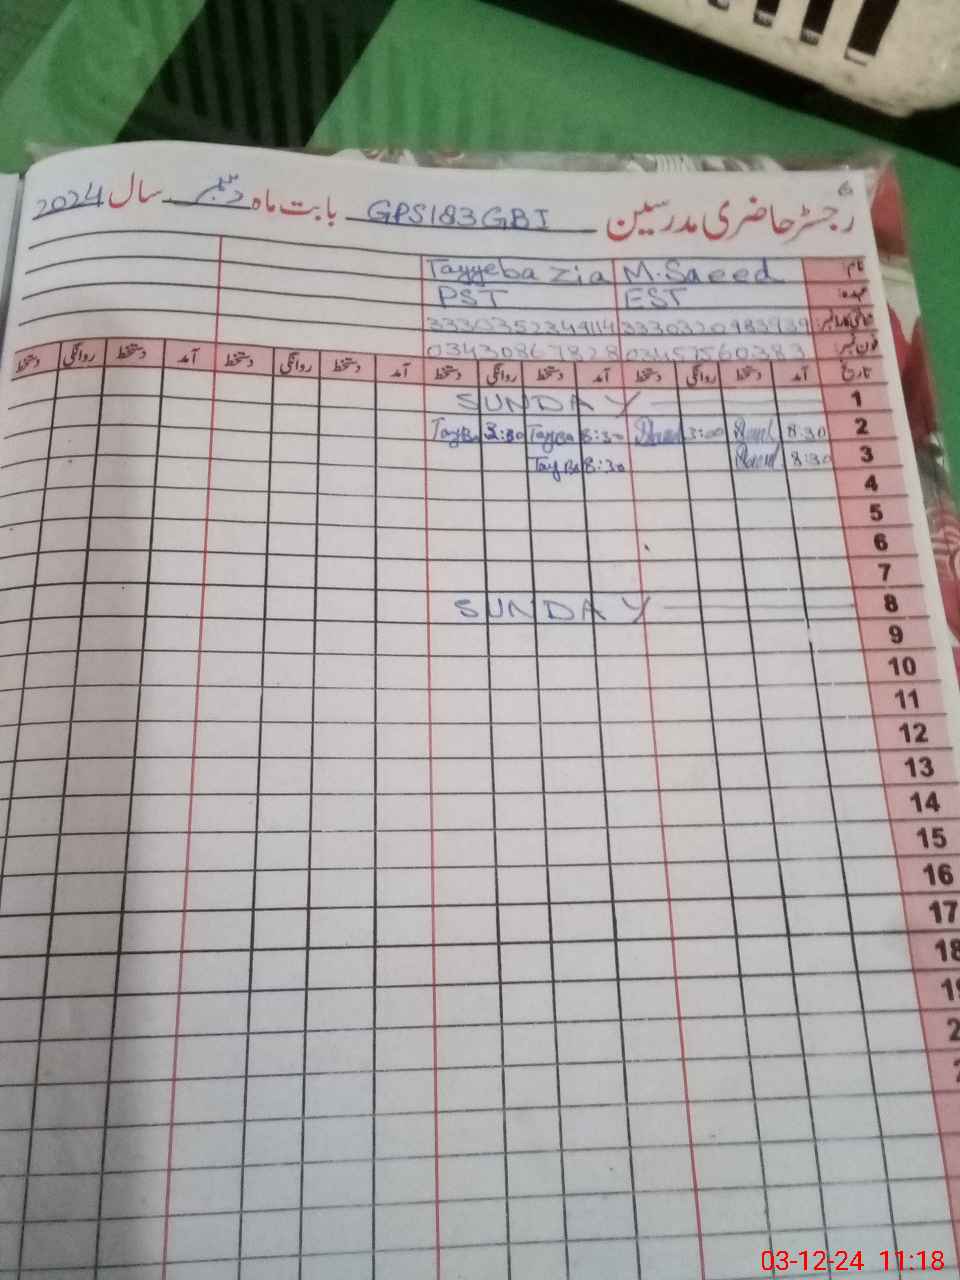 6
رجسٹر حاضری مدرسین GPS 183 GB I بابت ماہ دسمبر سال 2024
نام: M.Saeed Tayyeba Zia
عہدہ: EST PST
شناختی کارڈ نمبر:
فون نمبر: 03457560383 03430867828
تاریخ آمد دستخط روانگی دستخط آمد دستخط روانگی دستخط آمد دستخط روانگی دستخط آمد دستخط روانگی دستخط
1 SUNDAY
2 8:30 Saeed 3:00 Saeed 8:30 Tayyba 3:30 Tayyba
3 8:30 Saeed 8:30 Tayyba
4
5
6
7
8 SUNDAY
9
10
11
12
13
14
15
16
17
18
03-12-24 11:18